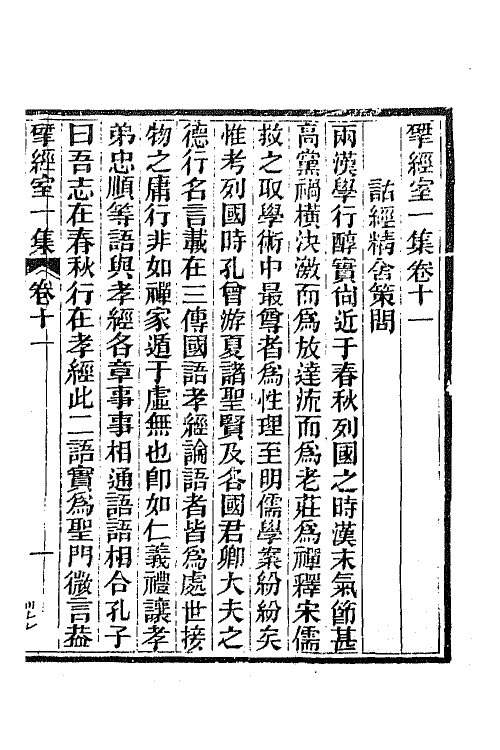 揅經室一集卷十一
詁經精舍策問
兩漢學行醇實尙近于春秋列國之時漢末氣節甚
高黨禍橫決激而爲放達流而爲老莊爲禪釋宋儒
救之取學術中最尊者爲性理至明儒學案紛紛矣
惟考列國時孔曾游夏諸聖賢及各國君卿大夫之
德行名言載在三傳國語孝經論語者皆爲處世接
物之庸行非如禪家遁于虛無也卽如仁義禮讓孝
弟忠順等語與孝經各章事事相通語語相合孔子
曰吾志在春秋行在孝經此二語實爲聖門微言葢
揅經室一集 卷十一 一